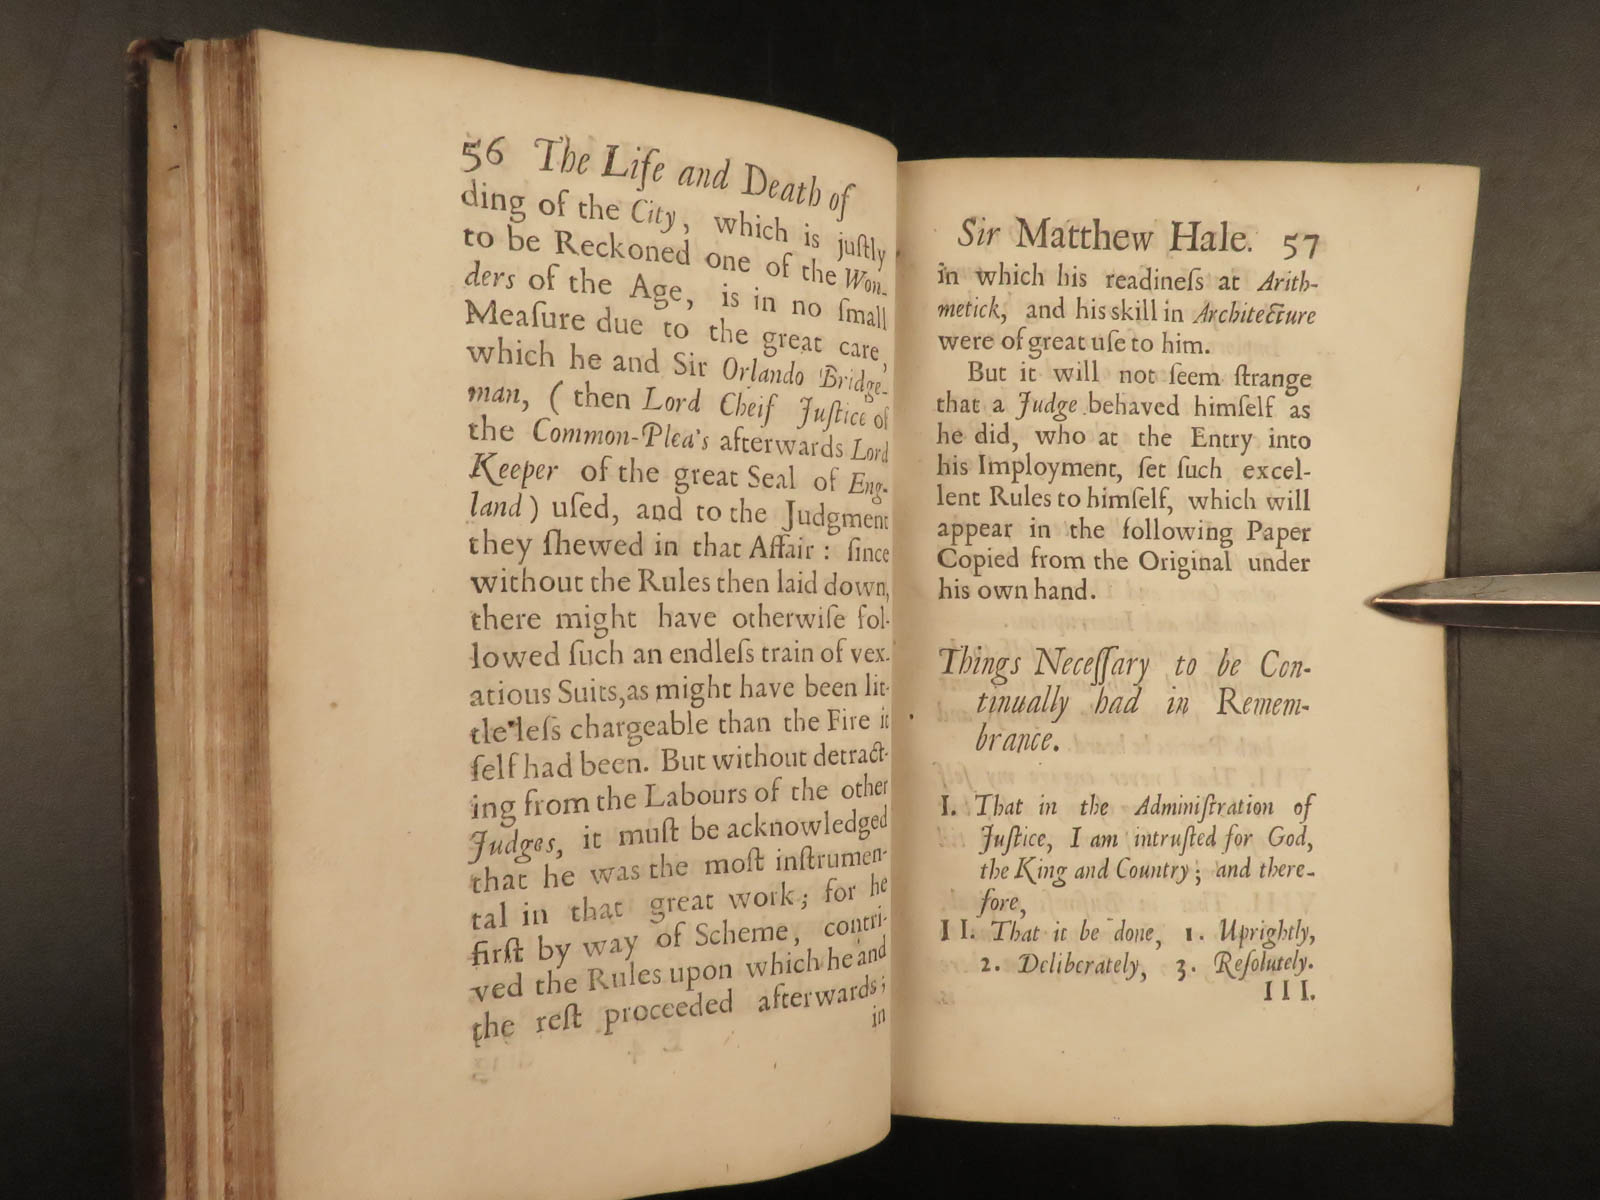 56 The Life and Death of
ding of the City, which is juſtly
to be Reckoned one of the Won-
ders of the Age, is in no ſmall
Meaſure due to the great care,
which he and Sir Orlando Bridge-
man, ( then Lord Cheif Juſtice of
the Common-Plea's afterwards Lord
Keeper of the great Seal of Eng-
land ) uſed, and to the Judgment
they ſhewed in that Affair : ſince
without the Rules then laid down,
there might have otherwiſe fol-
lowed ſuch an endleſs train of vex-
atious Suits, as might have been lit-
tle leſs chargeable than the Fire it
ſelf had been. But without detract-
ing from the Labours of the other
Judges, it muſt be acknowledged
that he was the moſt inſtrumen-
tal in that great work; for he
firſt by way of Scheme, contri-
ved the Rules upon which he and
the reſt proceeded afterwards;
in
Sir Matthew Hale. 57
in which his readineſs at Arith-
metick, and his skill in Architecture
were of great uſe to him.
But it will not ſeem ſtrange
that a Judge behaved himſelf as
he did, who at the Entry into
his Imployment, ſet ſuch excel-
lent Rules to himſelf, which will
appear in the following Paper
Copied from the Original under
his own hand.
Things Neceſſary to be Con-
tinually had in Remem-
brance.
I. That in the Adminiſtration of
Juſtice, I am intruſted for God,
the King and Country; and there-
fore,
II. That it be done, 1. Uprightly,
2. Deliberately, 3. Reſolutely.
III.